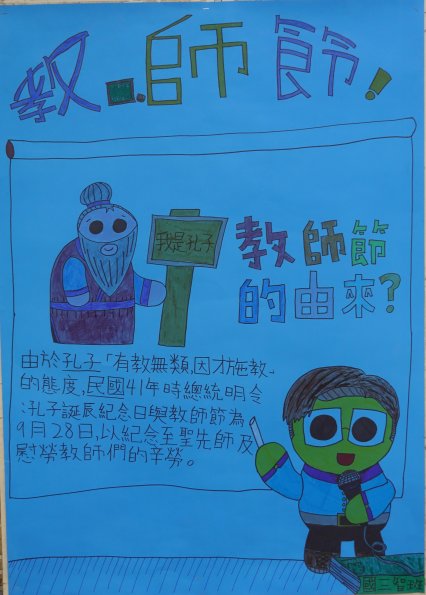 教師節!
我是孔子
教師節
的由來?
由於孔子「有教無類,因才施教」
的態度,民國41年時總統明令
:孔子誕辰紀念日與教師節為
9月28日,以紀念至聖先師及
慰勞教師們的辛勞。
國二智班